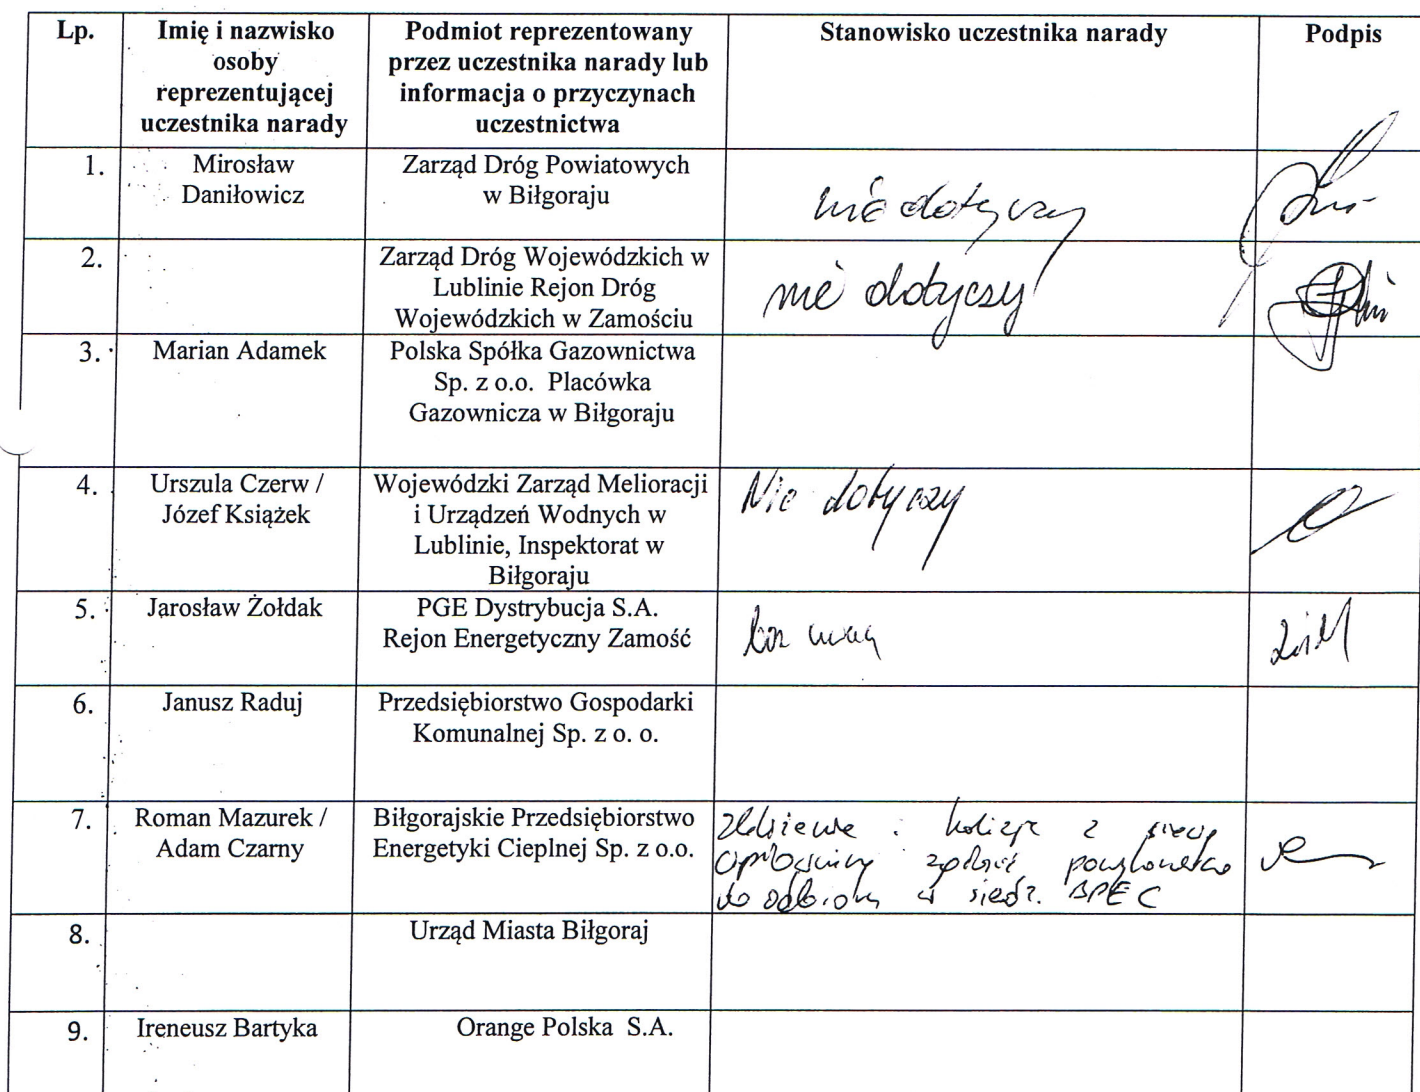 Lp.
Imię i nazwisko
osoby
reprezentującej
uczestnika narady
Podmiot reprezentowany
przez uczestnika narady lub
informacja o przyczynach
uczestnictwa
Stanowisko uczestnika narady
Podpis
1.
Mirosław
Daniłowicz
Zarząd Dróg Powiatowych
w Biłgoraju
nie dotyczy
2.
Zarząd Dróg Wojewódzkich w
Lublinie Rejon Dróg
Wojewódzkich w Zamościu
nie dotyczy
3.
Marian Adamek
Polska Spółka Gazownictwa
Sp. z o.o. Placówka
Gazownicza w Biłgoraju
4.
Urszula Czerw /
Józef Książek
Wojewódzki Zarząd Melioracji
i Urządzeń Wodnych w
Lublinie, Inspektorat w
Biłgoraju
Nie dotyczy
5.
Jarosław Żołdak
PGE Dystrybucja S.A.
Rejon Energetyczny Zamość
bez uwag
6.
Janusz Raduj
Przedsiębiorstwo Gospodarki
Komunalnej Sp. z o. o.
7.
Roman Mazurek /
Adam Czarny
Biłgorajskie Przedsiębiorstwo
Energetyki Cieplnej Sp. z o.o.
i kolizje z siecią
do odbioru w siedz. BPEC
8.
Urząd Miasta Biłgoraj
9.
Ireneusz Bartyka
Orange Polska S.A.